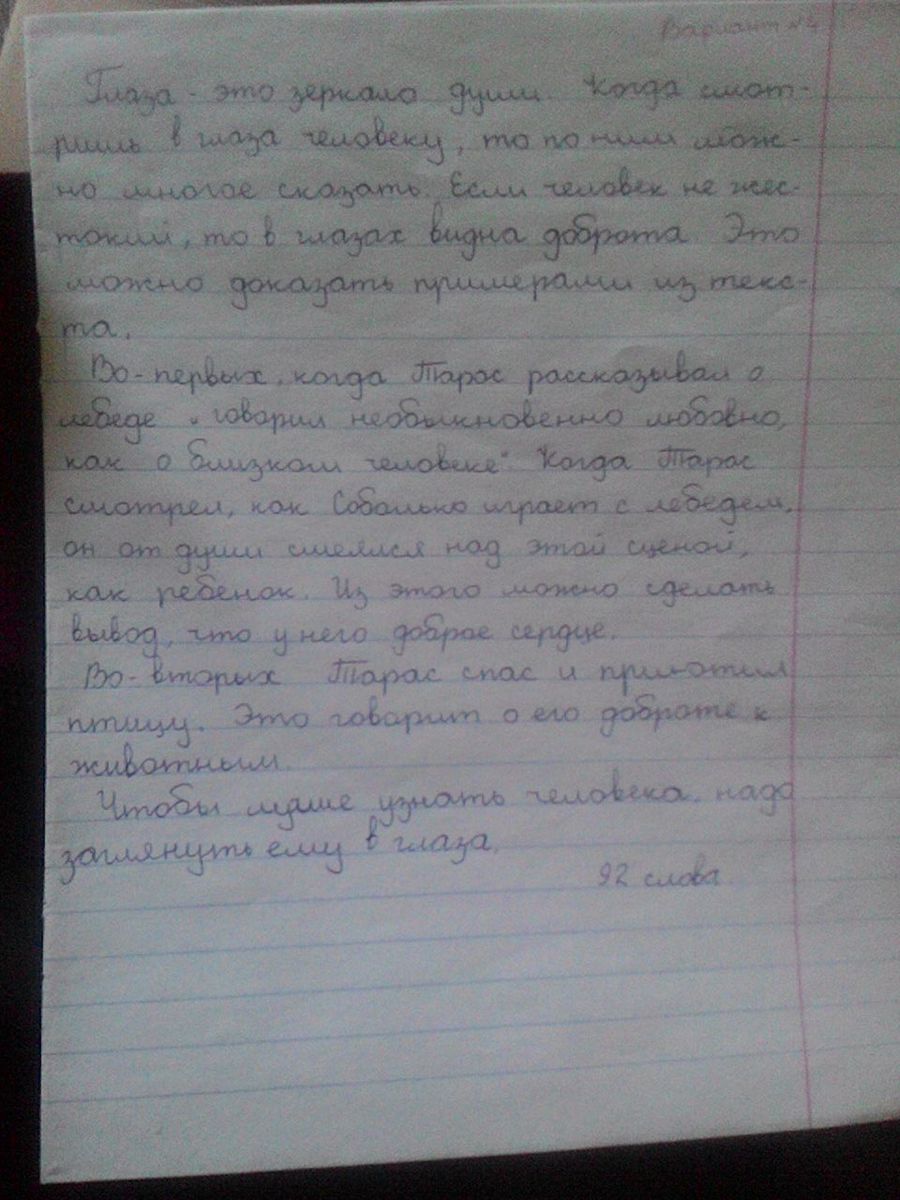 Вариант №4
Глаза - это зеркало души. Когда смот-
ришь в глаза человеку, то по ним мож-
но многое сказать. Если человек не жес-
токий, то в глазах видна доброта. Это
можно доказать примерами из текс-
та.
Во-первых, когда Тарас рассказывал о
лебеде „ говорил необыкновенно любовно,
как о близком человеке". Когда Тарас
смотрел, как Соболько играет с лебедем,
он от души смеялся над этой сценой,
как ребенок. Из этого можно сделать
вывод, что у него доброе сердце.
Во-вторых Тарас спас и приютил
птицу. Это говорит о его доброте к
животным.
Чтобы лучше узнать человека, надо
заглянуть ему в глаза.
92 слова